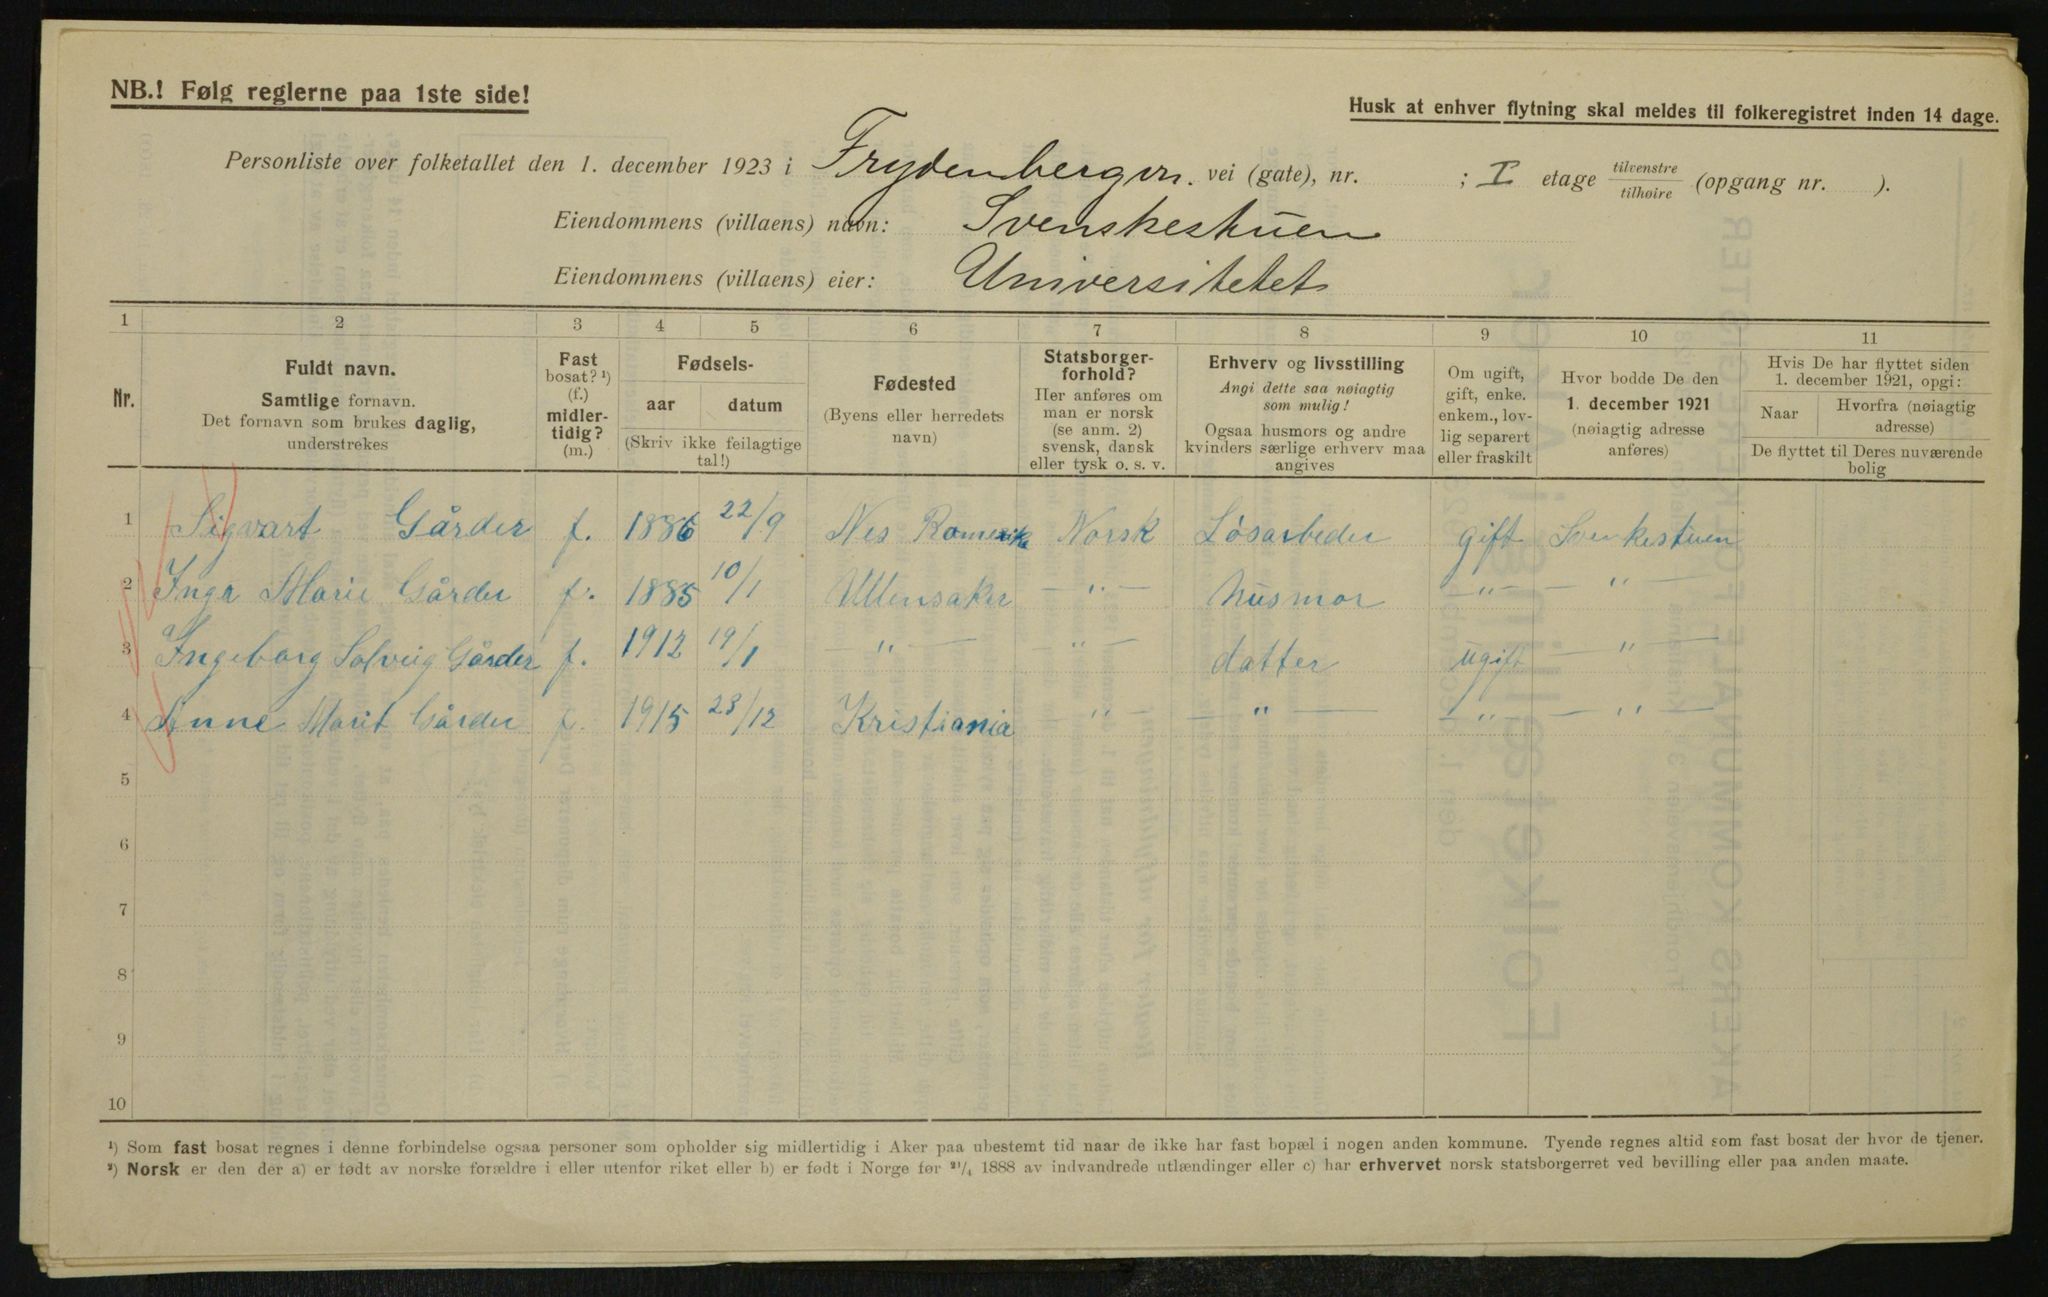 NB.! Følg reglerne paa 1ste side!
Husk at enhver flytning skal meldes til folkeregistret inden 14 dage.
Personliste over folketallet den 1. december 1923 i Frydenbergvn. vei (gate), nr. ; I etage tilvenstre/tilhøire (opgang nr. ).
Eiendommens (villaens) navn: Svenskestuen
Eiendommens (villaens) eier: Universitetet
1 2 3 4 5 6 7 8 9 10 11
Nr.
Fuldt navn.
Samtlige fornavn.
Det fornavn som brukes daglig,
understrekes
Fast
bosat? ¹)
(f.)
midler-
tidig?
(m.)
Fødsels-
aar datum
(Skriv ikke feilagtige
tal!)
Fødested
(Byens eller herredets
navn)
Statsborger-
forhold?
Her anføres om
man er norsk
(se anm. 2)
svensk, dansk
eller tysk o. s. v.
Erhverv og livsstilling
Angi dette saa nøiagtig
som mulig!
Ogsaa husmors og andre
kvinders særlige erhverv maa
angives
Om ugift,
gift, enke.
enkem., lov-
lig separert
eller fraskilt
Hvor bodde De den
1. december 1921
(nøiagtig adresse
anføres)
Hvis De har flyttet siden
1. december 1921, opgi:
Naar
Hvorfra (nøiagtig
adresse)
De flyttet til Deres nuværende
bolig
1 Sigvart Gårder f. 1886 22/9 Nes Romerike Norsk Løsarbeder gift Svenkestuen
2 Inga Marie Gårder f. 1885 10/1 Ullensaker —"— husmor —"— —"—
3 Ingeborg Solveig Gårder f. 1912 19/1 "— "— datter ugift —"—
4 Anne Marit Gårder f. 1915 23/12 Kristiania —"— —"— —"— —"—
5
6
7
8
9
10
¹) Som fast bosat regnes i denne forbindelse ogsaa personer som opholder sig midlertidig i Aker paa ubestemt tid naar de ikke har fast bopæl i nogen anden kommune. Tyende regnes altid som fast bosat der hvor de tjener.
²) Norsk er den der a) er født av norske forældre i eller utenfor riket eller b) er født i Norge før ²¹/₄ 1888 av indvandrede utlændinger eller c) har erhvervet norsk statsborgerret ved bevilling eller paa anden maate.